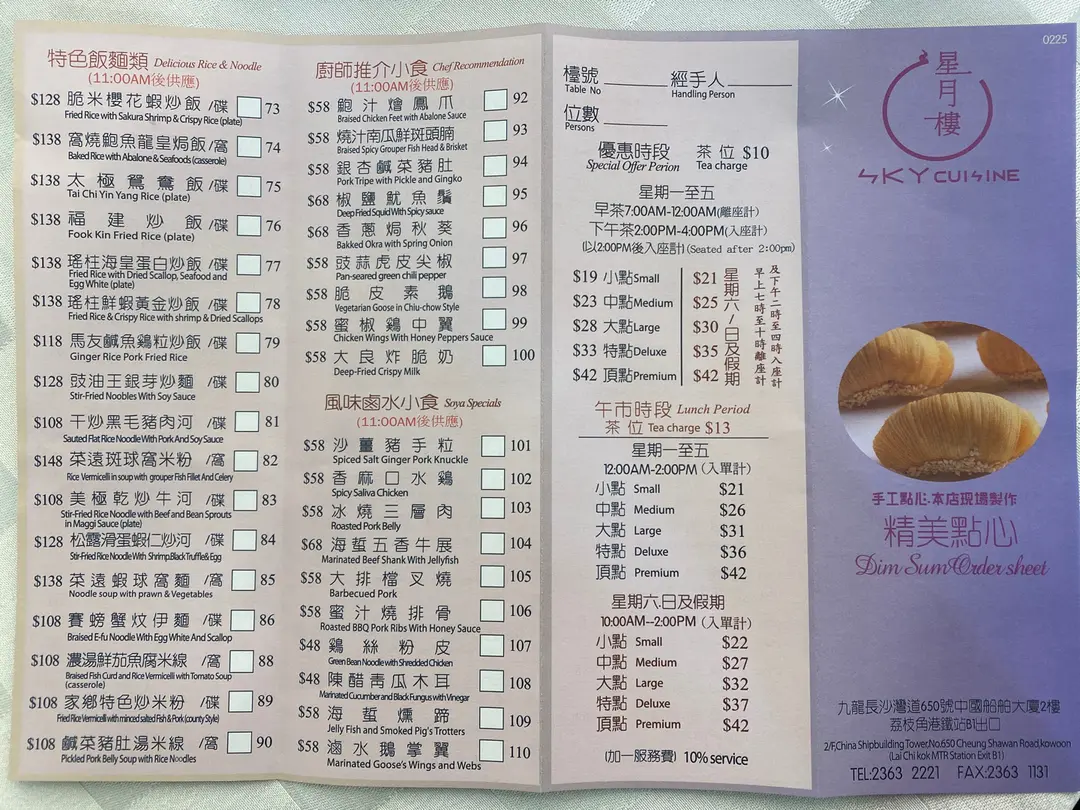 特色飯麵類 Delicious Rice & Noodle
(11:00AM後供應)
$128 脆米櫻花蝦炒飯 /碟 73
Fried Rice with Sakura Shrimp & Crispy Rice (plate)
$138 窩燒鮑魚龍皇焗飯 /窩 74
Baked Rice with Abalone & Seafoods (casserole)
$138 太極鴛鴦飯 /碟 75
Tai Chi Yin Yang Rice (plate)
$138 福建炒飯 /碟 76
Fook Kin Fried Rice (plate)
$138 瑤柱海皇蛋白炒飯 /碟 77
Fried Rice with Dried Scallop, Seafood and
Egg White (plate)
$138 瑤柱鮮蝦黃金炒飯 /碟 78
Fried Rice & Crispy Rice with shrimp & Dried Scallops
$118 馬友鹹魚鷄粒炒飯 /碟 79
Ginger Rice Pork Fried Rice
$128 豉油王銀芽炒麵 /碟 80
Stir-Fried Noobles With Soy Sauce
$108 干炒黑毛豬肉河 /碟 81
Sauted Flat Rice Noodle With Pork And Soy Sauce
$148 菜遠斑球窩米粉 /窩 82
Rice Vermicelli in soup with grouper Fish Fillet And Celery
$108 美極乾炒牛河 /碟 83
Stir-Fried Rice Noodle with Beef and Bean Sprouts
in Maggi Sauce (plate)
$128 松露滑蛋蝦仁炒河 /碟 84
Stir-Fried Rice Noodle With Shrimp,Black Truffle& Egg
$138 菜遠蝦球窩麵 /窩 85
Noodle soup with prawn & Vegetables
$108 賽螃蟹炆伊麵 /窩 86
Braised E-fu Noodle With Egg White And Scallop
$108 濃湯鮮茄魚腐米線 /窩 88
Braised Fish Curd and Rice Vermicelli with Tomato Soup
(casserole)
$108 家鄉特色炒米粉 /碟 89
Fried Rice Vermicelli with minced salted Fish & Pork (county Style)
$108 鹹菜豬肚湯米線 /窩 90
Pickled Pork Belly Soup with Rice Noodles
廚師推介小食 Chef Recommendation
(11:00AM後供應)
$58 鮑汁燴鳳爪 92
Braised Chicken Feet with Abalone Sauce
$58 燒汁南瓜鮮斑頭腩 93
Braised Spicy Grouper Fish Head & Brisket
$58 銀杏鹹菜豬肚 94
Pork Tripe with Pickle and Gingko
$68 椒鹽魷魚鬚 95
Deep Fried Squid With Spicy sauce
$68 香蔥焗秋葵 96
Bakked Okra with Spring Onion
$58 豉蒜虎皮尖椒 97
Pan-seared green chili pepper
$58 脆皮素鵝 98
Vegetarian Goose in Chiu-chow Style
$58 蜜椒鷄中翼 99
Chicken Wings With Honey Peppers Sauce
$58 大良炸脆奶 100
Deep-Fried Crispy Milk
風味鹵水小食 Soya Specials
(11:00AM後供應)
$58 沙薑豬手粒 101
Spiced Salt Ginger Pork Knuckle
$58 香麻口水鷄 102
Spicy Saliva Chicken
$58 冰燒三層肉 103
Roasted Pork Belly
$68 海蜇五香牛展 104
Marinated Beef Shank With Jellyfish
$58 大排檔叉燒 105
Barbecued Pork
$58 蜜汁燒排骨 106
Roasted BBQ Pork Ribs With Honey Sauce
$48 鷄絲粉皮 107
Green Bean Noodle with Shredded Chicken
$48 陳醋青瓜木耳 108
Marinated Cucumber and Black Fungus with Vinegar
$58 海蜇燻蹄 109
Jelly Fish and Smoked Pig's Trotters
$58 滷水鵝掌翼 110
Marinated Goose's Wings and Webs
檯號 經手人
Table No Handling Person
位數
Persons
優惠時段 茶位 $10
Special Offer Perion Tea charge
星期一至五
早茶7:00AM-12:00AM(離座計)
下午茶2:00PM-4:00PM(入座計)
(以2:00PM後入座計)(Seated after 2:00pm)
$19 小點Small $21
$23 中點Medium $25
$28 大點Large $30
$33 特點Deluxe $35
$42 頂點Premium $42
星期六/日及假期
早上七時至十時離座計
及下午二時至四時入座計
午市時段 Lunch Period
茶位 Tea charge $13
星期一至五
12:00AM-2:00PM (入單計)
小點 Small $21
中點 Medium $26
大點 Large $31
特點 Deluxe $36
頂點 Premium $42
星期六.日及假期
10:00AM--2:00PM (入單計)
小點 Small $22
中點 Medium $27
大點 Large $32
特點 Deluxe $37
頂點 Premium $42
(加一服務費) 10% service
0225
星月樓
SKY CUISINE
手工點心.本店現場製作
精美點心
Dim Sum Order sheet
九龍長沙灣道650號中國船舶大廈2樓
荔枝角港鐵站B1出口
2/F,China Shipbuilding Tower,No.650 Cheung Shawan Road,kowoon
(Lai Chi kok MTR Station Exit B1)
TEL:2363 2221 FAX:2363 1131